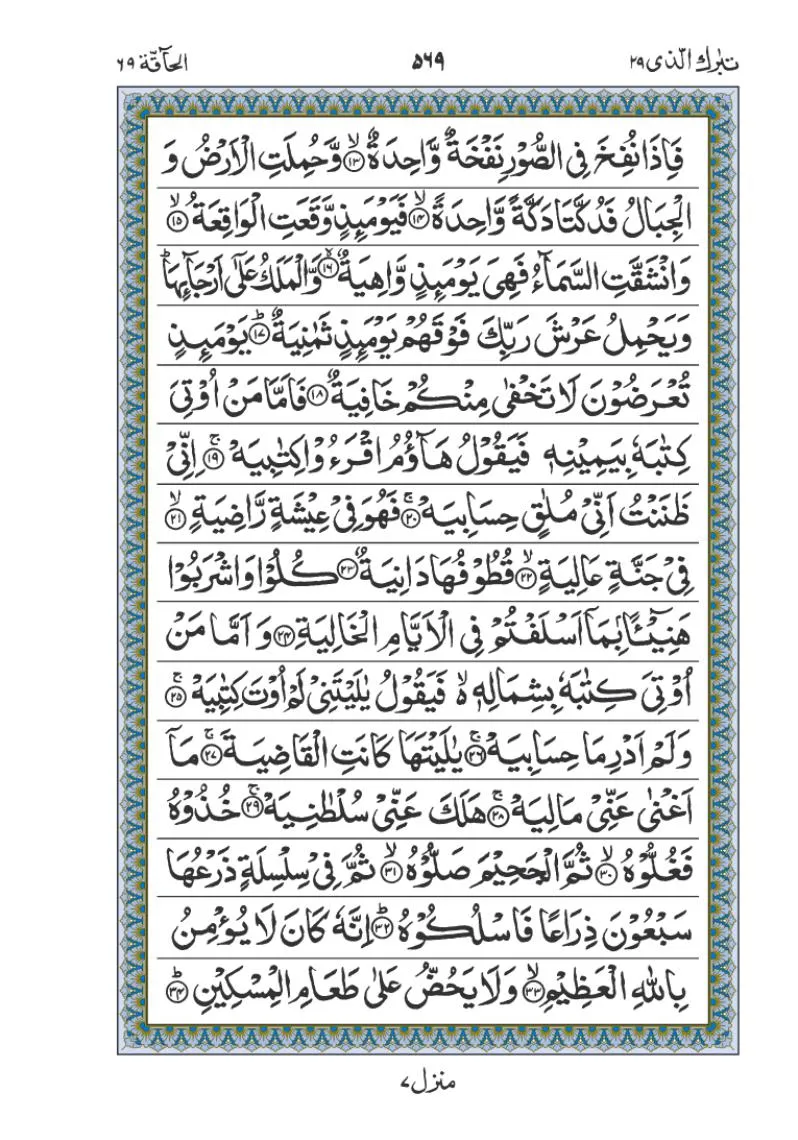 تبٰرك الّذی ٢٩
٥٦٩
الحآقّة ٦٩
فَاِذَا نُفِخَ فِی الصُّوْرِ نَفْخَةٌ وَّاحِدَةٌ ۙ‏﴿۱۳﴾ وَّحُمِلَتِ الْاَرْضُ وَ
الْجِبَالُ فَدُكَّتَا دَكَّةً وَّاحِدَةً ۙ‏﴿۱۴﴾ فَيَوْمَئِذٍ وَّقَعَتِ الْوَاقِعَةُ ۙ‏﴿۱۵﴾
وَانْشَقَّتِ السَّمَآءُ فَهِیَ يَوْمَئِذٍ وَّاهِيَةٌ ۙ‏﴿۱۶﴾ وَّالْمَلَكُ عَلٰٓی اَرْجَآئِهَا ؕ
وَيَحْمِلُ عَرْشَ رَبِّكَ فَوْقَهُمْ يَوْمَئِذٍ ثَمٰنِيَةٌ ؕ‏﴿۱۷﴾ يَوْمَئِذٍ
تُعْرَضُوْنَ لَا تَخْفٰی مِنْكُمْ خَافِيَةٌ ‏﴿۱۸﴾ فَاَمَّا مَنْ اُوْتِیَ
كِتٰبَهٗ بِيَمِيْنِهٖ فَيَقُوْلُ هَآؤُمُ اقْرَءُوْا كِتٰبِيَهْ ۚ‏﴿۱۹﴾ اِنِّیْ
ظَنَنْتُ اَنِّیْ مُلٰقٍ حِسَابِيَهْ ۚ‏﴿۲۰﴾ فَهُوَ فِیْ عِيْشَةٍ رَّاضِيَةٍ ۙ‏﴿۲۱﴾
فِیْ جَنَّةٍ عَالِيَةٍ ۙ‏﴿۲۲﴾ قُطُوْفُهَا دَانِيَةٌ ‏﴿۲۳﴾ كُلُوْا وَاشْرَبُوْا
هَنِيْٓـئًۢا بِمَآ اَسْلَفْتُمْ فِی الْاَيَّامِ الْخَالِيَةِ ‏﴿۲۴﴾ وَ اَمَّا مَنْ
اُوْتِیَ كِتٰبَهٗ بِشِمَالِهٖ ۙ فَيَقُوْلُ يٰلَيْتَنِیْ لَمْ اُوْتَ كِتٰبِيَهْ ۚ‏﴿۲۵﴾
وَلَمْ اَدْرِ مَا حِسَابِيَهْ ۚ‏﴿۲۶﴾ يٰلَيْتَهَا كَانَتِ الْقَاضِيَةَ ۚ‏﴿۲۷﴾ مَآ
اَغْنٰی عَنِّیْ مَالِيَهْ ۚ‏﴿۲۸﴾ هَلَكَ عَنِّیْ سُلْطٰنِيَهْ ۚ‏﴿۲۹﴾ خُذُوْهُ
فَغُلُّوْهُ ۙ‏﴿۳۰﴾ ثُمَّ الْجَحِيْمَ صَلُّوْهُ ۙ‏﴿۳۱﴾ ثُمَّ فِیْ سِلْسِلَةٍ ذَرْعُهَا
سَبْعُوْنَ ذِرَاعًا فَاسْلُكُوْهُ ؕ‏﴿۳۲﴾ اِنَّهٗ كَانَ لَا يُؤْمِنُ
بِاللّٰهِ الْعَظِيْمِ ۙ‏﴿۳۳﴾ وَلَا يَحُضُّ عَلٰی طَعَامِ الْمِسْكِيْنِ ؕ‏﴿۳۴﴾
منزل ٧